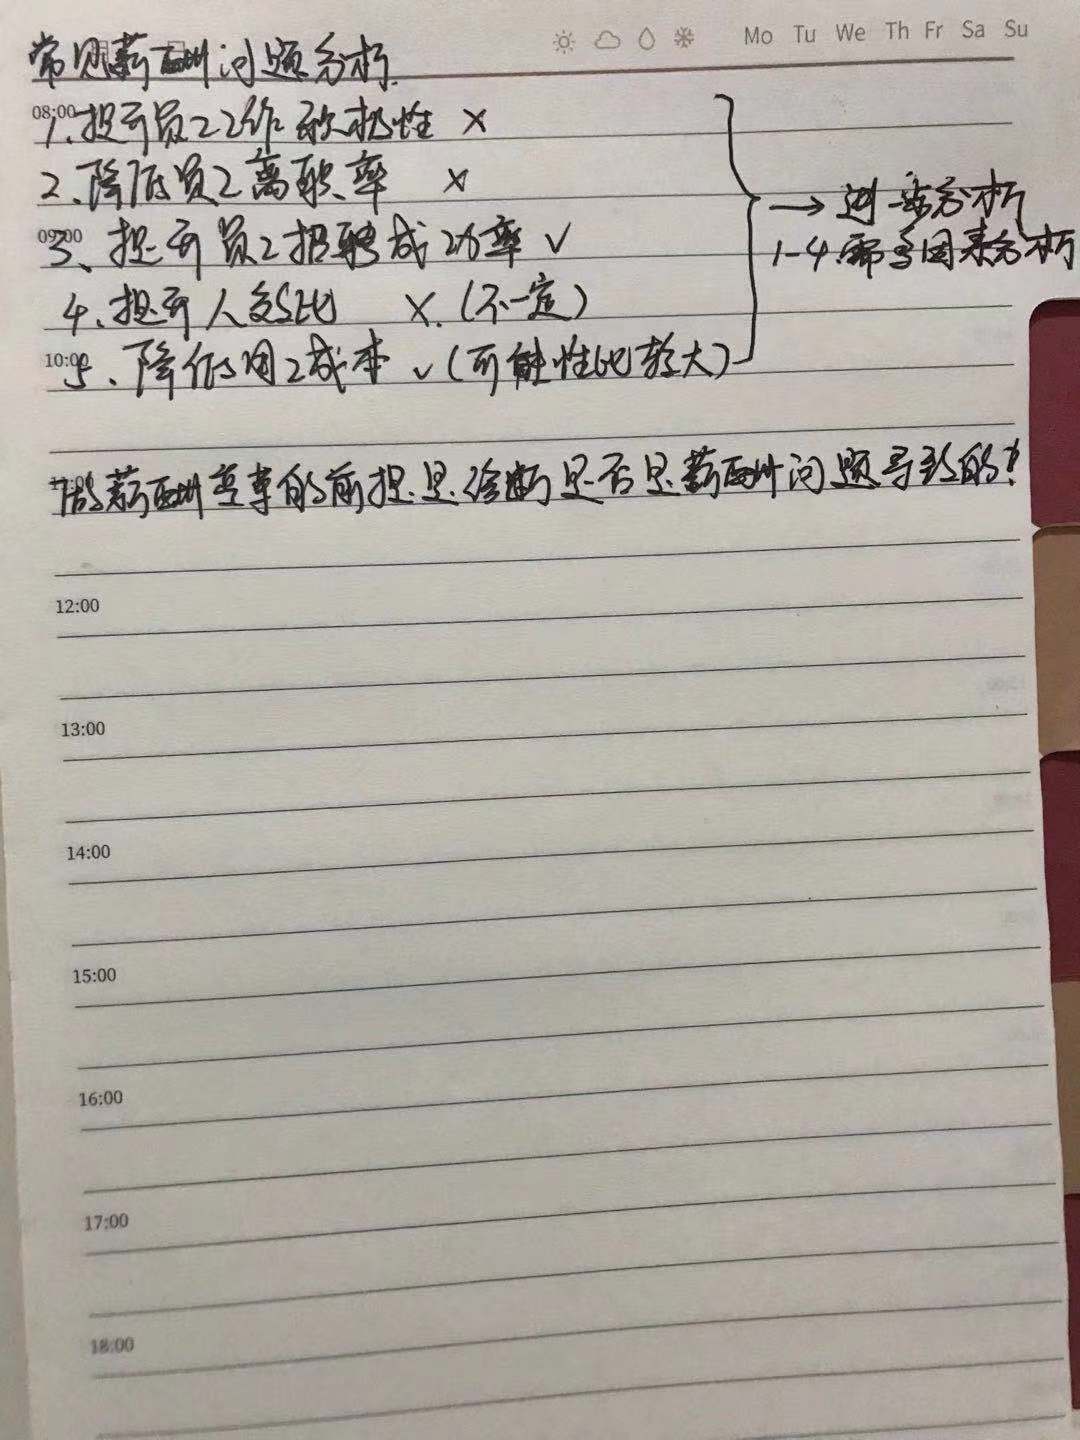 Mo Tu We Th Fr Sa Su
常见薪酬问题分析.
08:00
1、提升员工工作积极性 ×
2、降低员工离职率 ×
09:00
3、提升员工招聘成功率 √
4、提升人效比 ×.(不一定)
10:00
5、降低用工成本 √(可能性比较大)
→ 进一步分析
1-4.需多因素分析
"做薪酬变革的前提是诊断是否是薪酬问题导致的"
12:00
13:00
14:00
15:00
16:00
17:00
18:00